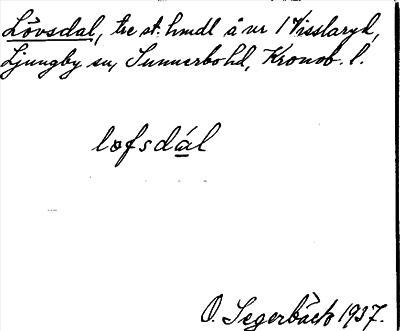 Lövsdal, tre st. hmdl å nr 1 Visslaryd,
Ljungby sn, Sunnerbo hd, Kronob. l.
lofsdál
O. Segerbäck 1937.